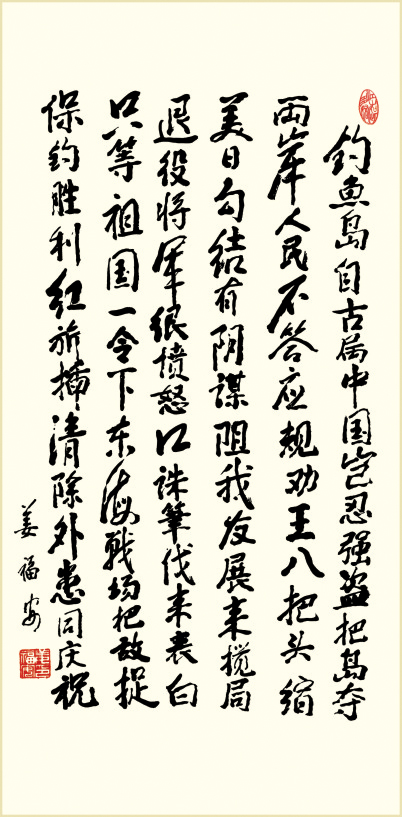 钓鱼岛自古属中国岂忍强盗把岛夺
两岸人民不答应规劝王八把头缩
美日勾结有阴谋阻我发展来搅局
退役将军很愤怒口诛笔伐来表白
只等祖国一令下东海战场把敌捉
保钓胜利红旗插清除外患同庆祝
姜福安